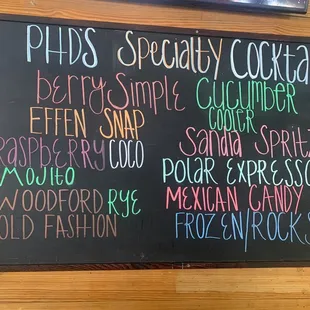 PHD'S Specialty Cockta
berry Simple
EFFEN SNAP
RASPBERRY COCO
MOJITO
WOODFORD RYE
OLD FASHION
CUCUMBER
COOLER
Sandia Spritz
POLAR EXPRESSO
MEXICAN CANDY
FROZEN/ROCKS